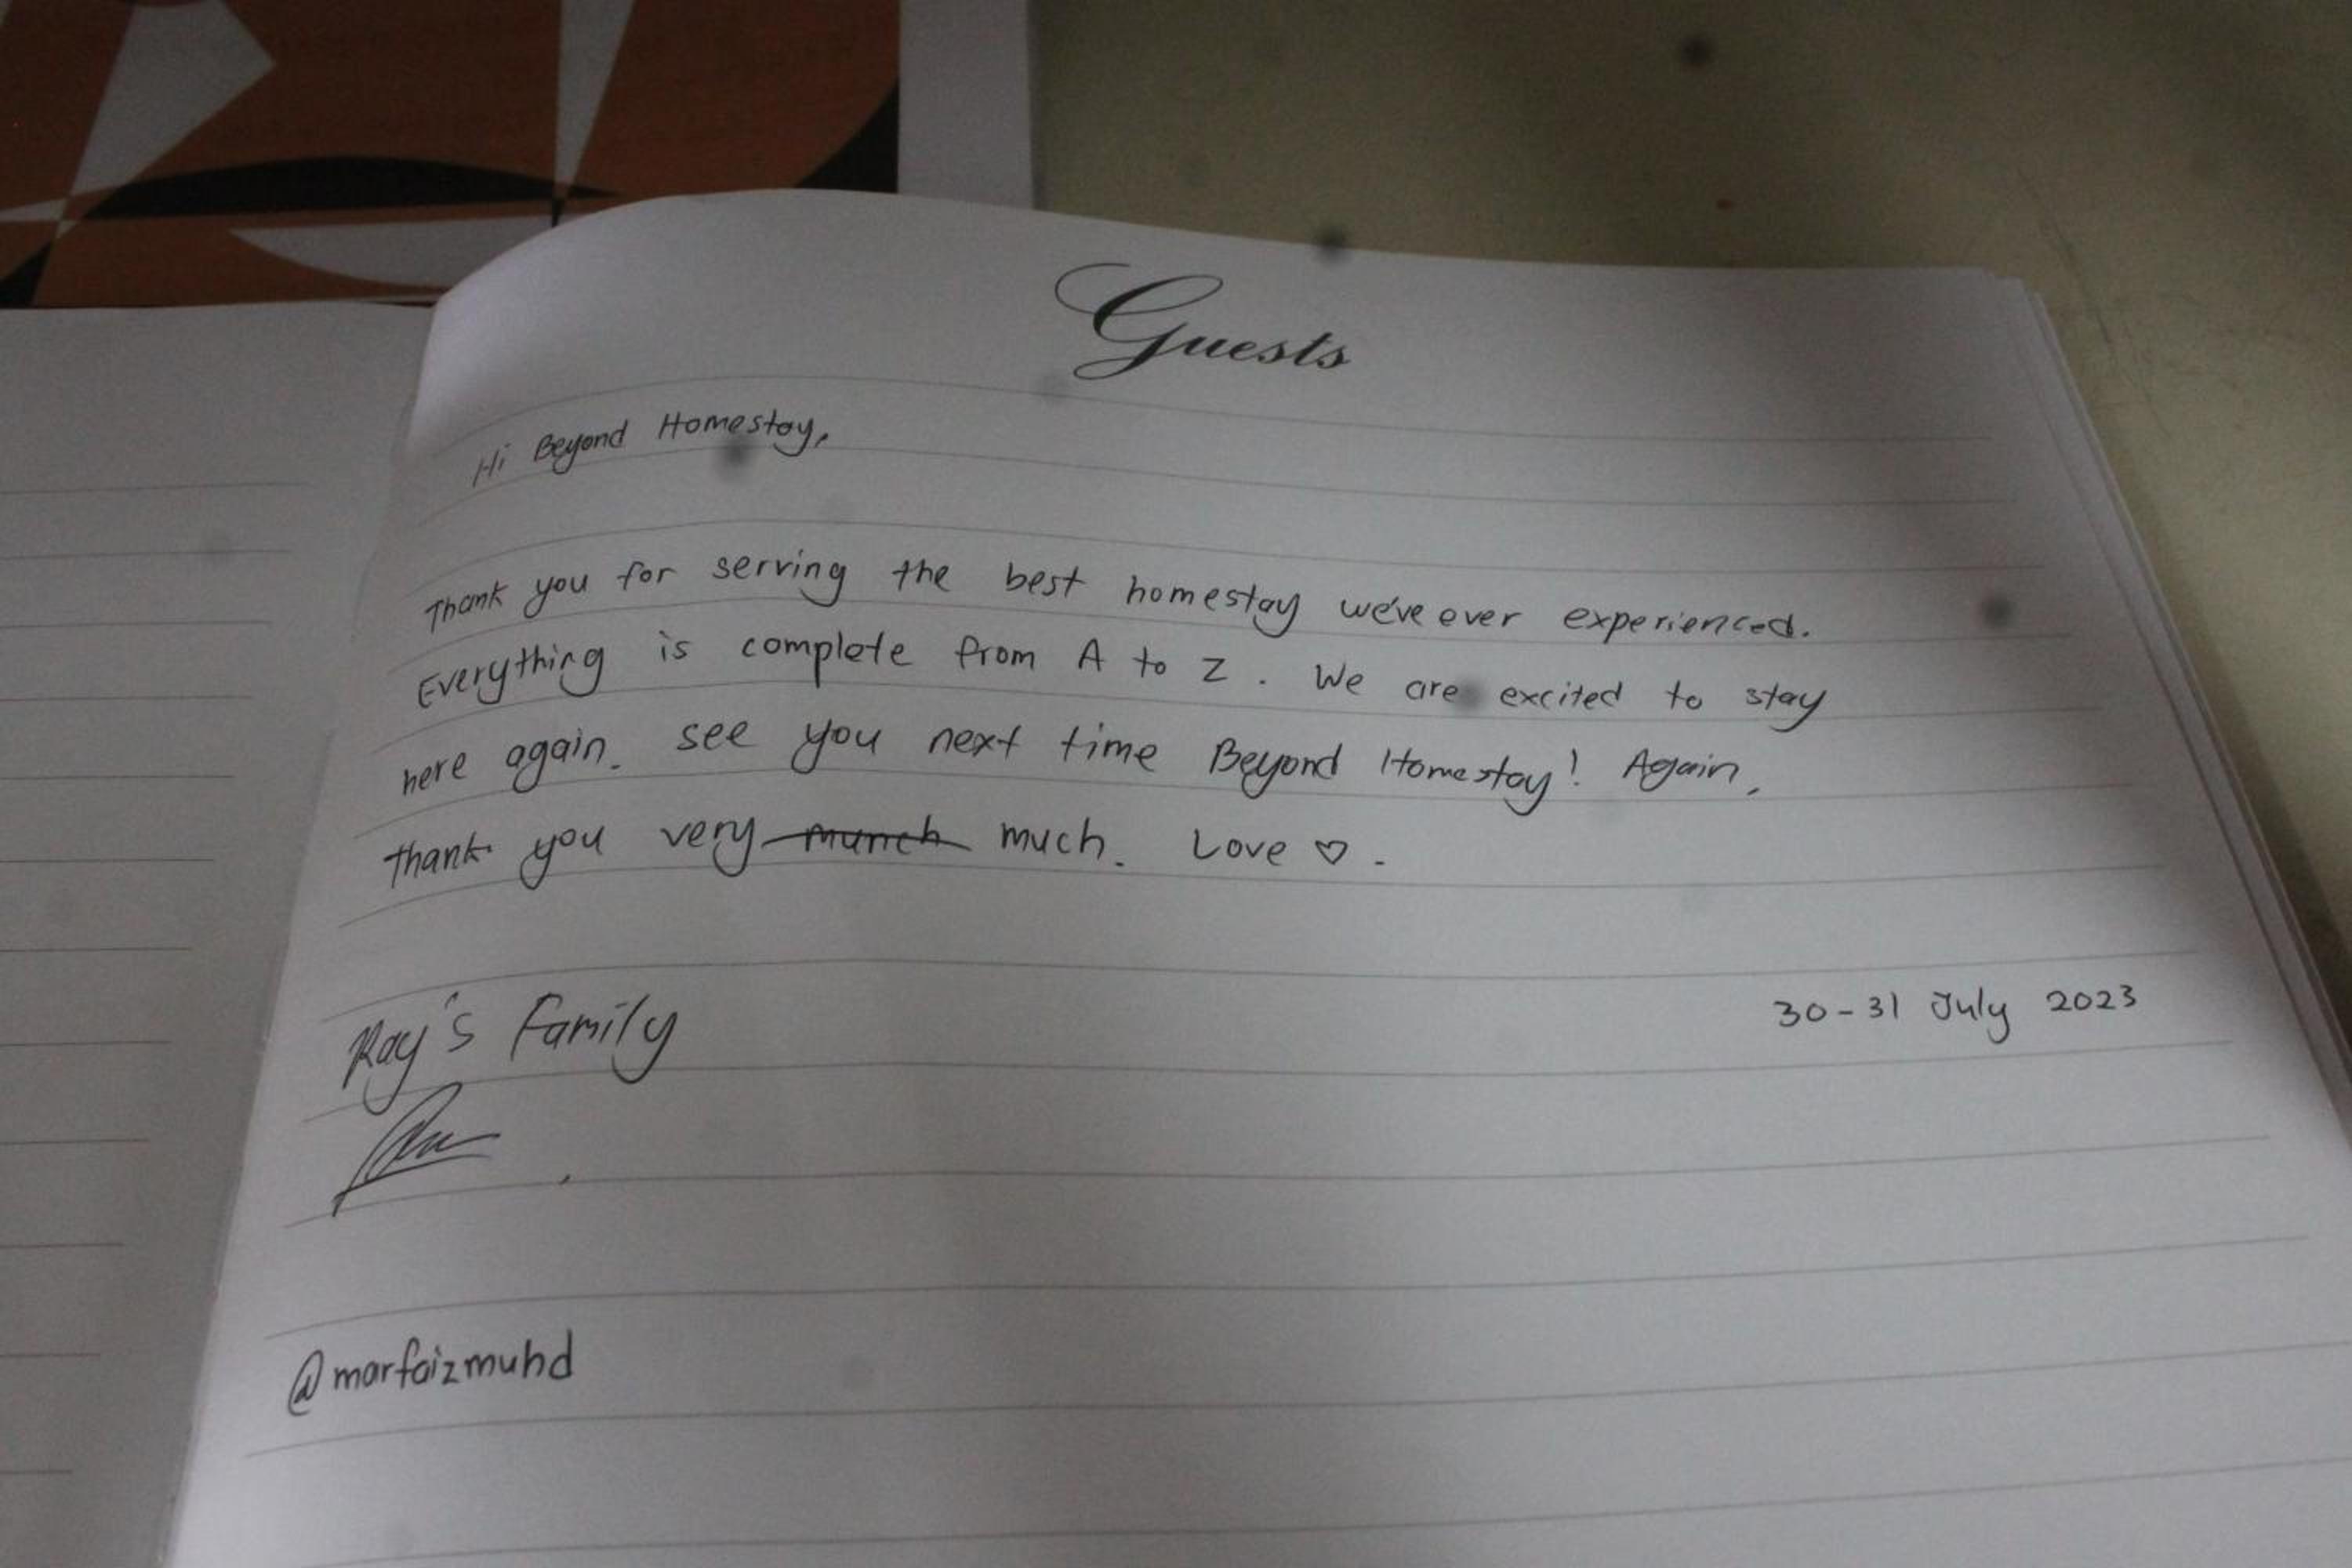 Guests
Hi Beyond Homestay,
Thank you for serving the best homestay we've ever experienced.
Everything is complete from A to Z. We are excited to stay
here again. see you next time Beyond Homestay! Again,
thank you very munch much. Love ♡.
Ray's Family
30-31 July 2023
@marfaizmuhd